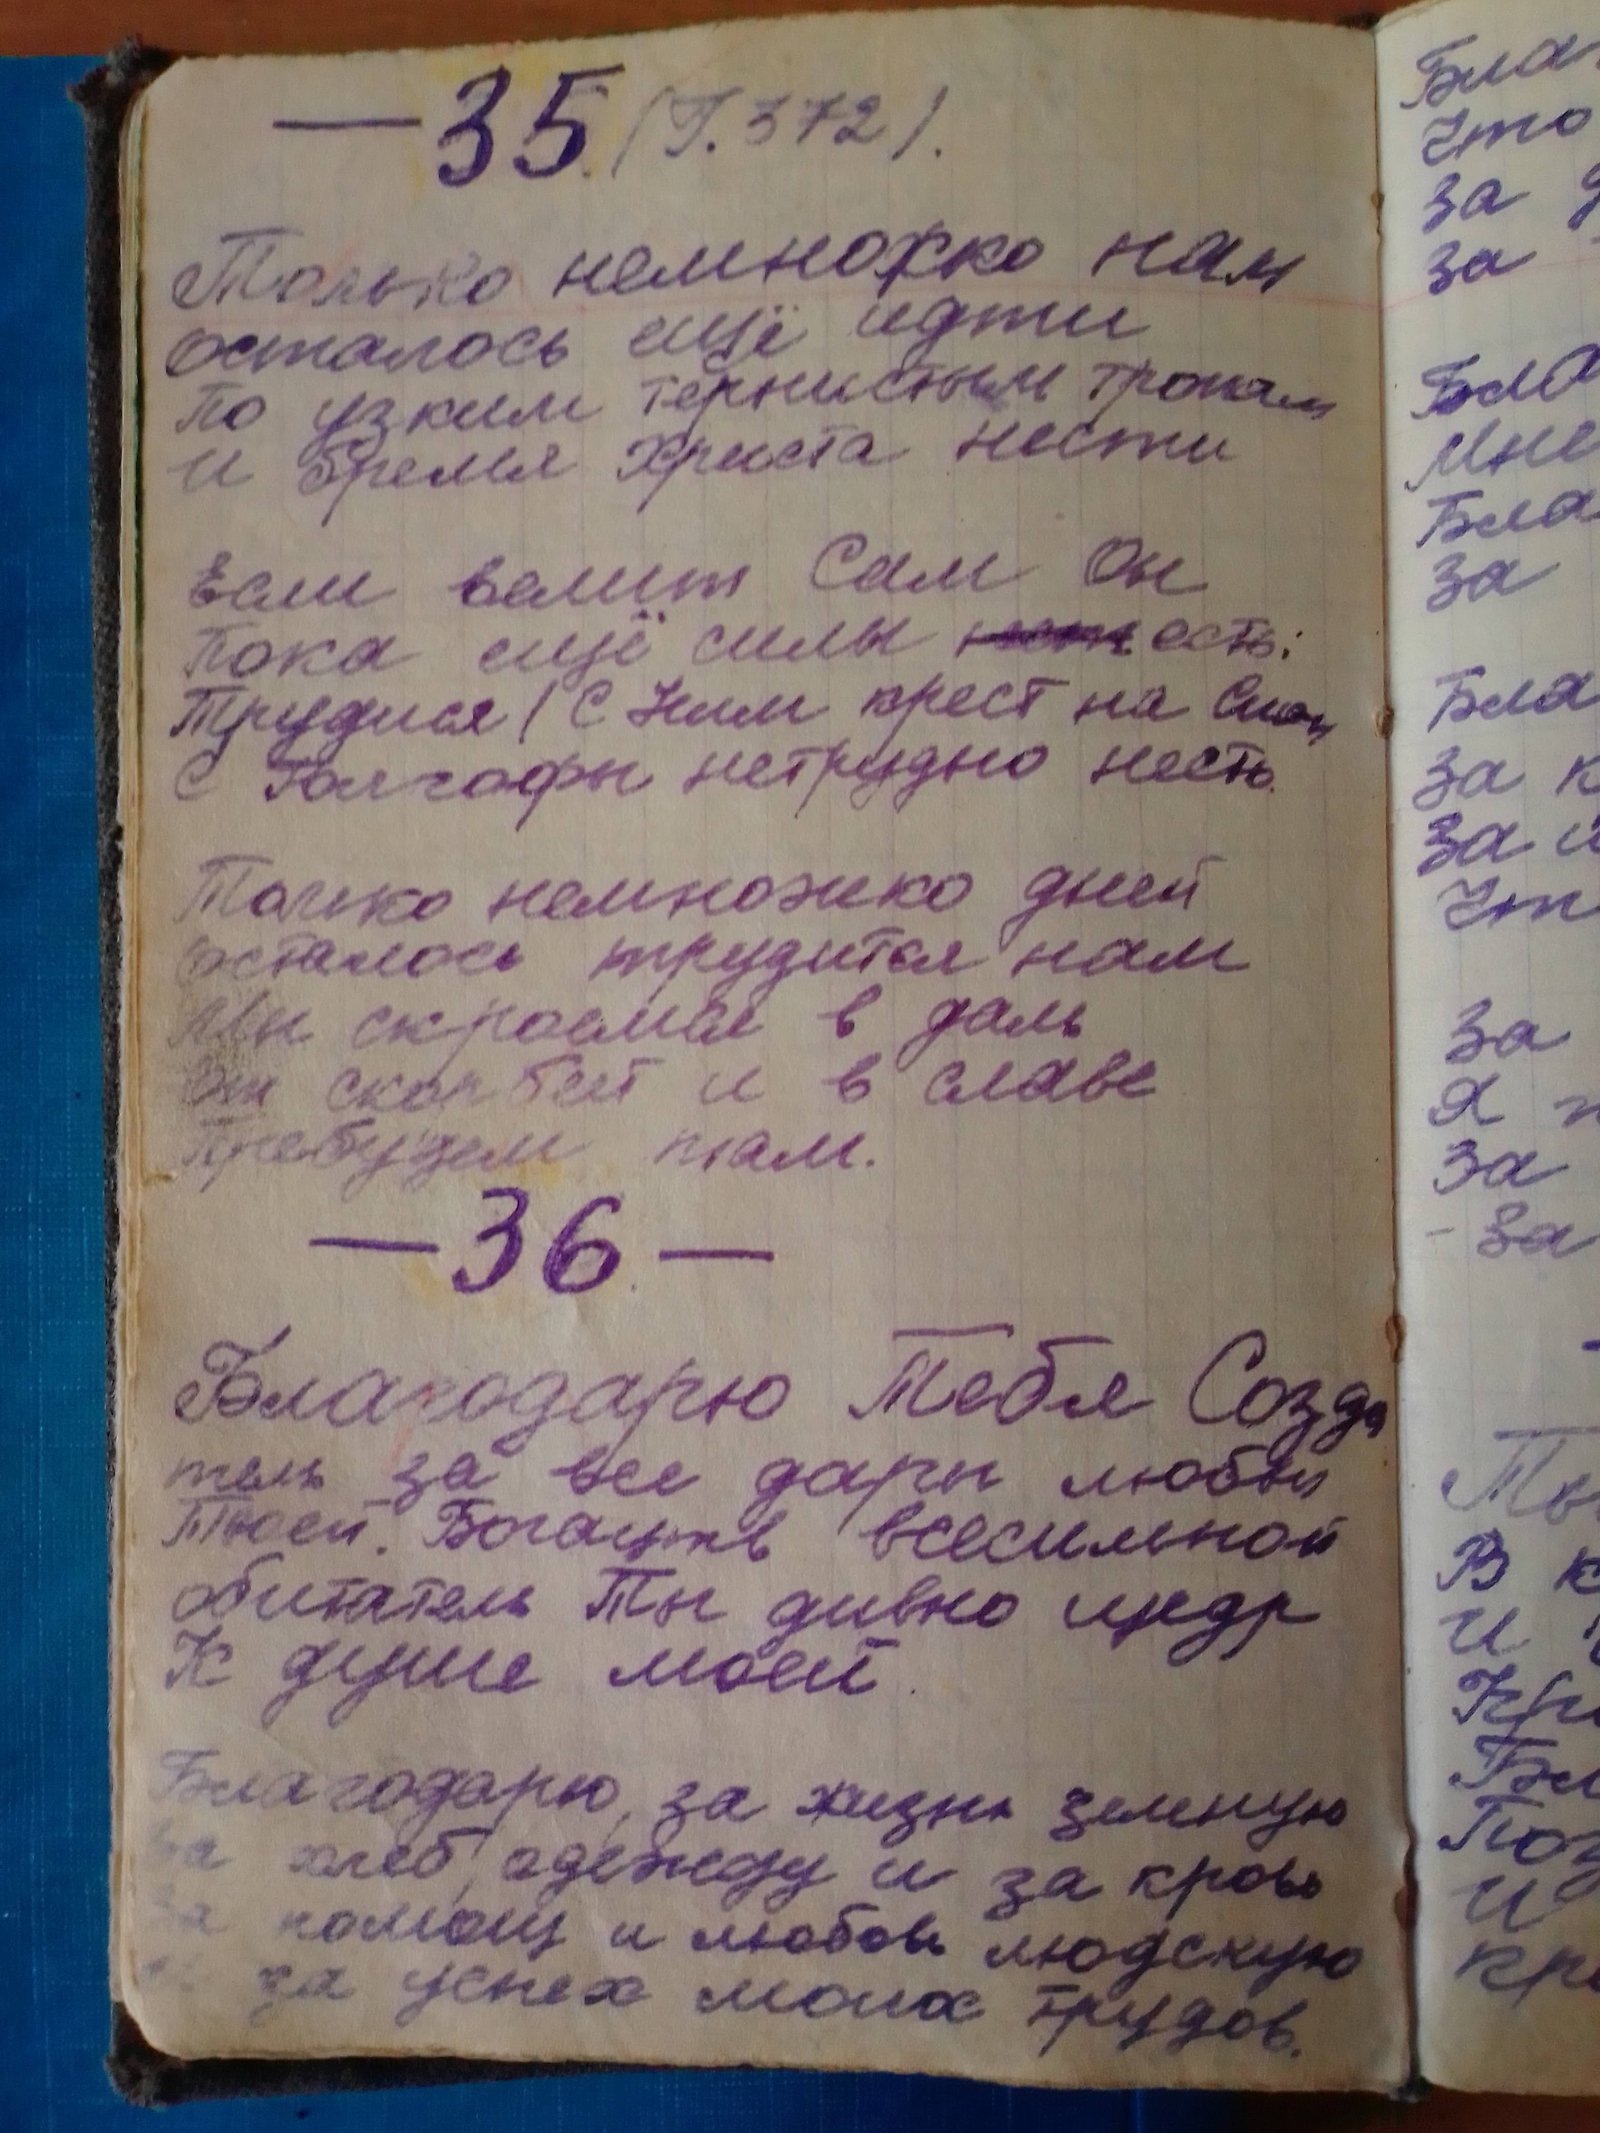 — 35. (Г. 372).
Только немножко нам
осталось ещё идти
По узким тернистым тропам
и бремя Христа нести
Если велит Сам Он
Пока ещё силы есть:
Трудися! С Ним крест на Сион
С Голгофы нетрудно несть.
Только немножко дней
осталось трудится нам
Мы скроемся в даль
от скорбей и в славе
Пребудем там.
— 36. —
Благодарю Тебя Созда
тель за все дары любви
Твоей. Богацтв всесильной
обитатель Ты дивно щедр
К душе моей.
Благодарю, за жизнь земную
За хлеб, одежду и за кровь
За помощ и любовь людскую
и за успех моих трудов.
Бла
Что
за
за
Бла
Мне
Бла
за
Бла
за к
за и
Что
За
Я п
За
- За
Ты
В к
И
Кр
Бл
Поз
И
кр